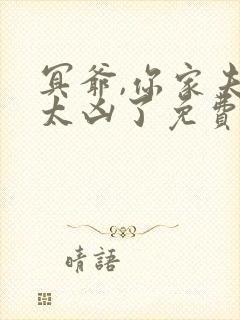 冥爺,你家夫
太凶了免費
晴語